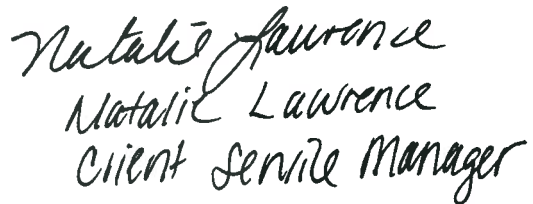 Natalie Lawrence
Natalie Lawrence
Client Service Manager